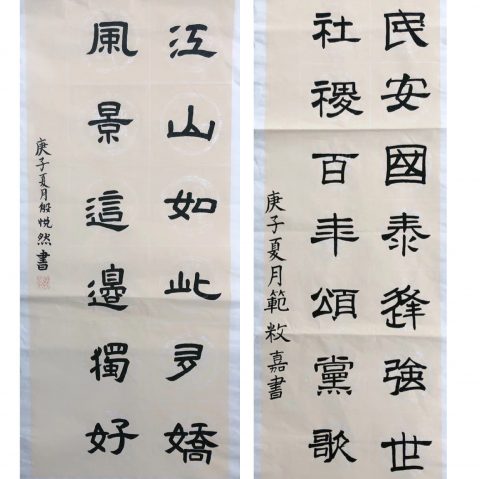 江山如此多嬌
風景這邊獨好
庚子夏月殷悦然書
民安國泰逢強世
社稷百年頌黨歌
庚子夏月範敉嘉書